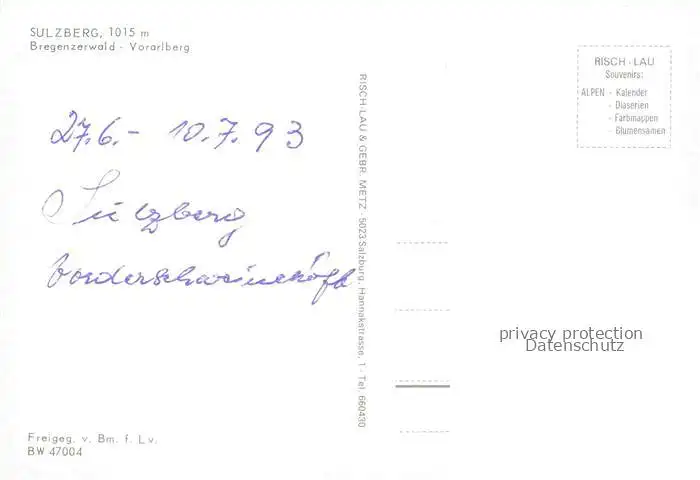 SULZBERG, 1015 m
Bregenzerwald - Vorarlberg
RISCH-LAU
Souvenirs:
ALPEN - Kalender
- Diaserien
- Farbmappen
- Blumensamen
27.6.- 10.7.93
Sulzberg
RISCH-LAU & GEBR. METZ - 5023 Salzburg, Hannakstrasse, 1 - Tel. 660430
privacy protection
Datenschutz
Freigeg. v. Bm. f. Lv.
BW 47004